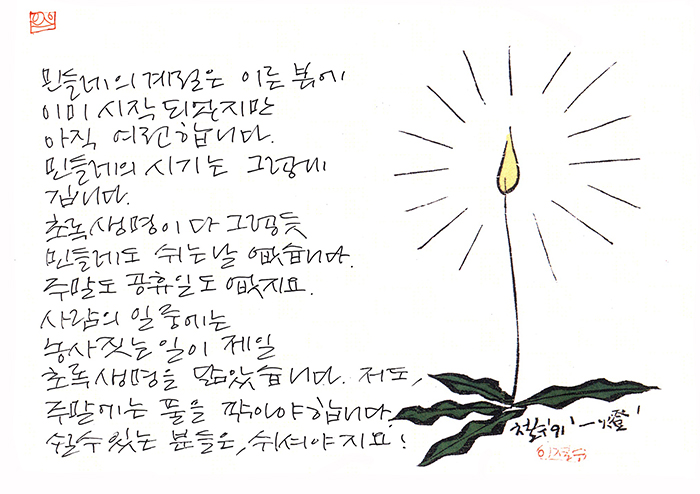 민들레의 계절은 이른 봄에
이미 시작 되었지만
아직 여전합니다.
민들레의 시기는 그렇게
깁니다.
초록생명이 다 그렇듯
민들레도 쉬는날 없습니다.
주말도 공휴일도 없지요.
사람의 일 중에는
농사짓는 일이 제일
초록생명을 닮았습니다. 저도,
주말에는 풀을 깎아야합니다.
쉴수 있는 분들은, 쉬셔야지요!
철수의 '一燈'